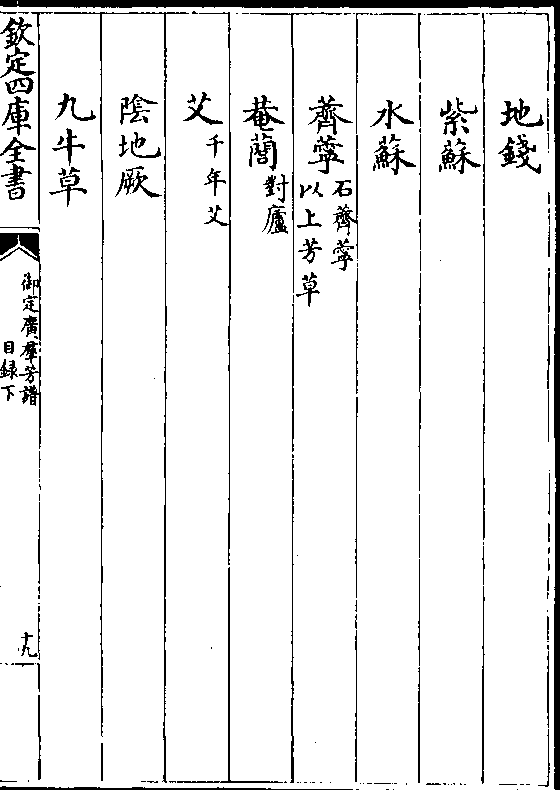 地錢
紫蘇
水蘇
薺薴 石薺薴 以上芳草
菴䕡 對廬
艾 千年艾
陰地厥
九牛草
欽定四庫全書 御定廣羣芳譜 目録下 十九